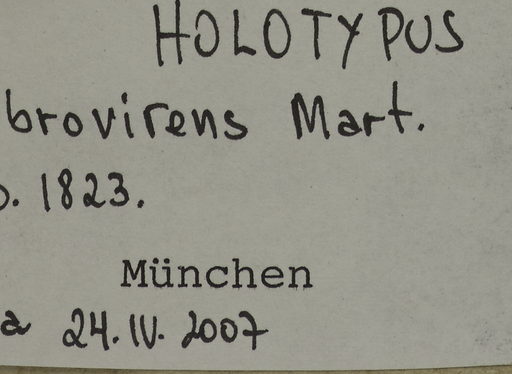 HOLOTYPUS
brovirens Mart.
o. 1823.
München
a 24.IV.2007